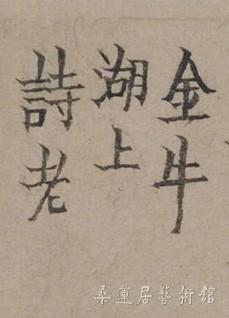 金牛
湖上
詩老
桑蓮居藝術館